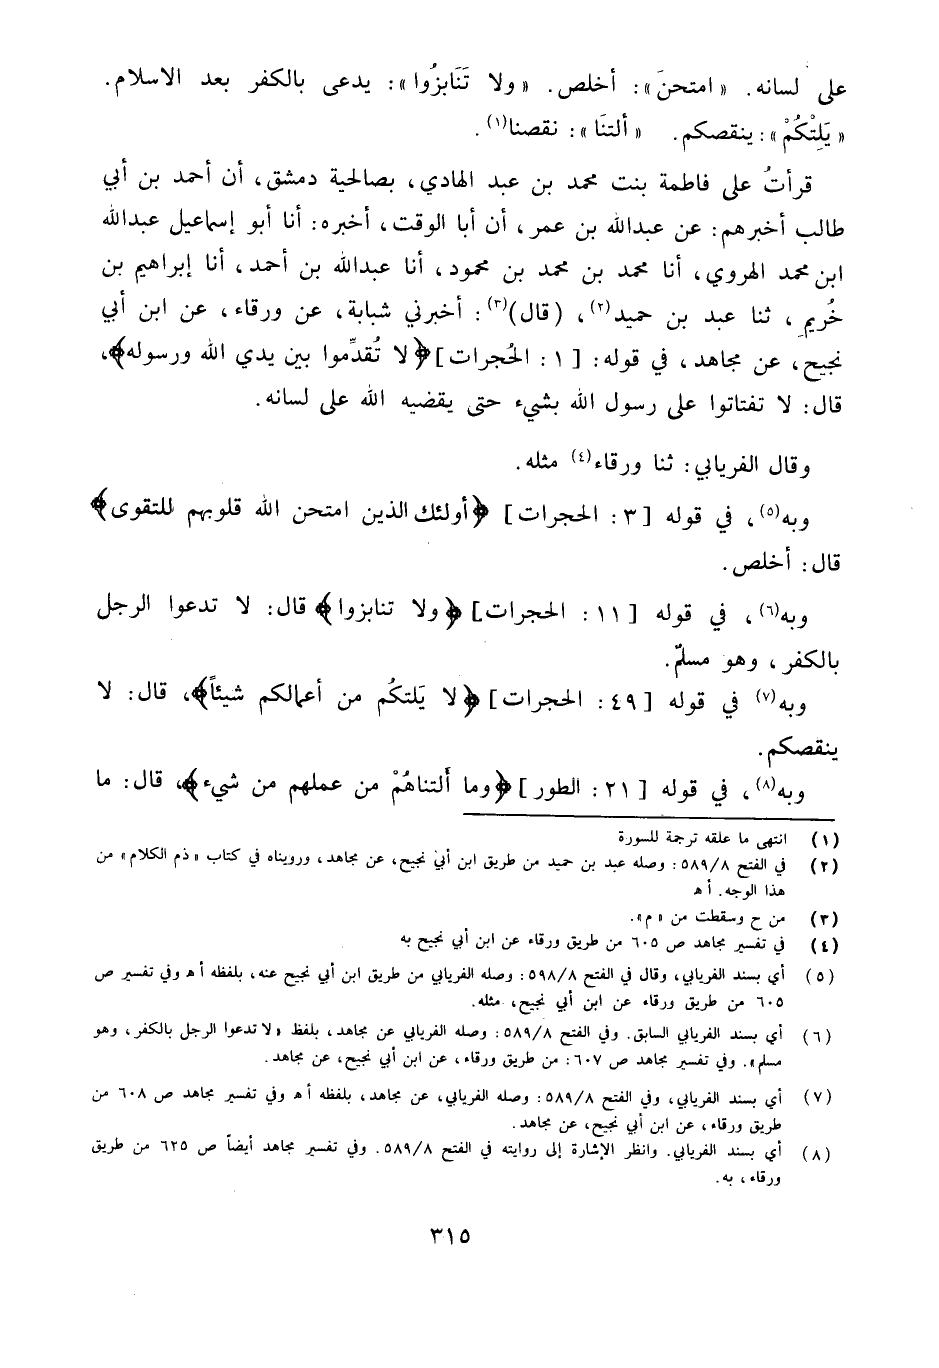 على لسانه. «امتحنَ»: أخلص. «ولا تَنَابزُوا»: يدعى بالكفر بعد الاسلام.
«يَلِتْكُمْ»: ينقصكم. «ألتنَا»: نقصنا(١).
قرأتُ على فاطمة بنت محمد بن عبد الهادي، بصالحية دمشق، أن أحمد بن أبي
طالب أخبرهم: عن عبدالله بن عمر، أن أبا الوقت، أخبره: أنا أبو إسماعيل عبدالله
ابن محمد الهروي، أنا محمد بن محمد بن محمود، أنا عبدالله بن أحمد، أنا إبراهيم بن
خُريم، ثنا عبد بن حميد(٢)، (قال)(٣): أخبرني شبابة، عن ورقاء، عن ابن أبي
نجيح، عن مجاهد، في قوله: [١: الحُجرات] ﴿لا تُقدِّموا بين يدي الله ورسوله﴾،
قال: لا تفتاتوا على رسول الله بشيء حتى يقضيه الله على لسانه.
وقال الفريابي: ثنا ورقاء(٤) مثله.
وبه(٥)، في قوله [٣: الحجرات] ﴿أولئك الذين امتحن الله قلوبهم للتقوى﴾
قال: أخلص.
وبه(٦)، في قوله [١١: الحجرات] ﴿ولا تنابزوا﴾ قال: لا تدعوا الرجل
بالكفر، وهو مسلمٌ.
وبه(٧) في قوله [٤٩: الحجرات] ﴿لا يَلتكُم من أعمالكم شيئاً﴾، قال: لا
ينقصكم.
وبه(٨)، في قوله [٢١: الطور] ﴿وما أَلتناهُمْ من عملهم من شيء﴾، قال: ما
(١) انتهى ما علقه ترجمة للسورة
(٢) في الفتح ٥٨٩/٨: وصله عبد بن حميد من طريق ابن أبي نجيح، عن مجاهد، ورويناه في كتاب «ذم الكلام» من
هذا الوجه. أ هـ
(٣) من ح وسقطت من «م».
(٤) في تفسير مجاهد ص ٦٠٥ من طريق ورقاء عن ابن أبي نجيح به
(٥) أي بسند الفريابي، وقال في الفتح ٥٩٨/٨: وصله الفريابي من طريق ابن أبي نجيح عنه، بلفظه أ هـ وفي تفسير ص
٦٠٥ من طريق ورقاء عن ابن أبي نجيح، مثله.
(٦) أي بسند الفريابي السابق. وفي الفتح ٥٨٩/٨: وصله الفريابي عن مجاهد، بلفظ «لا تدعوا الرجل بالكفر، وهو
مسلم». وفي تفسير مجاهد ص ٦٠٧: من طريق ورقاء، عن ابن أبي نجيح، عن مجاهد.
(٧) أي بسند الفريابي، وفي الفتح ٥٨٩/٨: وصله الفريابي، عن مجاهد، بلفظه أ هـ وفي تفسير مجاهد ص ٦٠٨ من
طريق ورقاء، عن ابن أبي نجيح، عن مجاهد.
(٨) أي بسند الفريابي. وانظر الإشارة إلى روايته في الفتح ٥٨٩/٨. وفي تفسير مجاهد أيضاً ص ٦٢٥ من طريق
ورقاء، به.
٣١٥